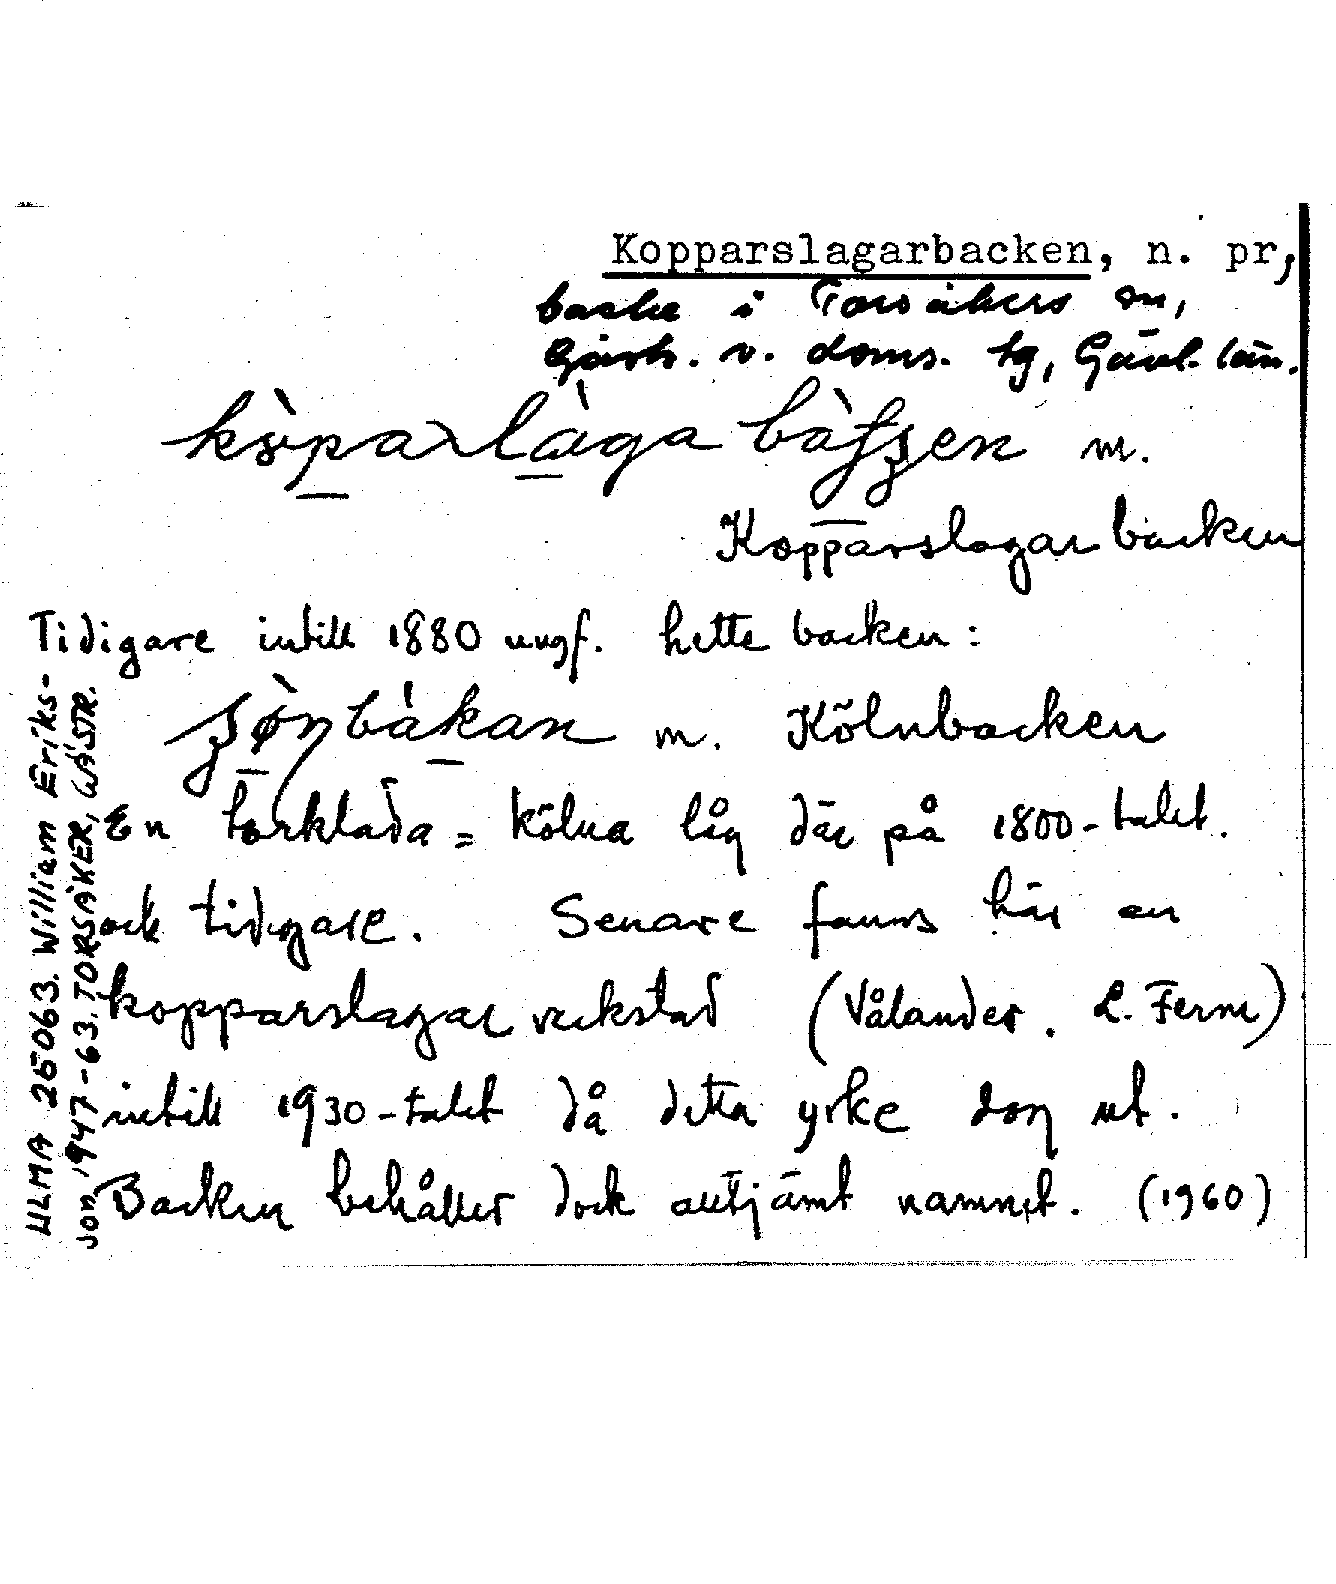 Kopparslagarbacken, n. pr,
backe i Torsåkers sn,
Gästr. v. doms. tg, Gävl. län.
m.
Kopparslagarbacken
Tidigare intill 1880 ungf. hette backen:
m. Kölnbacken
En torklada = kölna låg där på 1800-talet.
och tidigare. Senare fanns här en
kopparslagarverkstad (Vålander. L. Ferm)
intill 1930-talet då detta yrke dog ut.
Backen behåller dock alltjämt namnet. (1960)
ULMA 25063. William Eriks-
son 1947-63. TORSÅKER, GÄSTR.